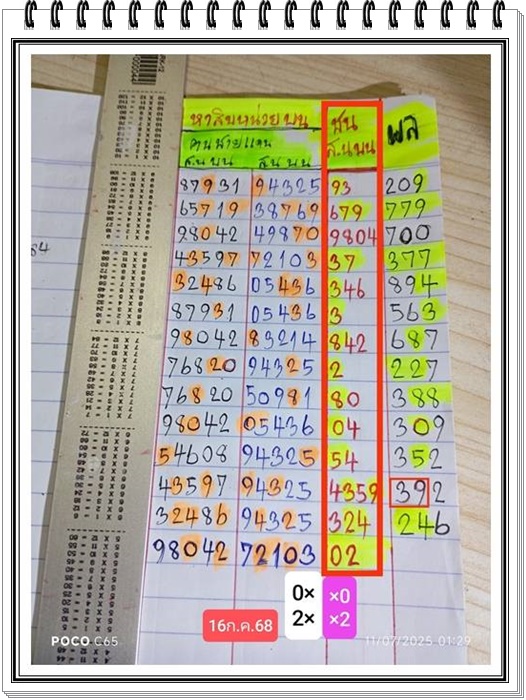 หาสิบหน่วย บน ชน ผล
คนซ้ายแถน ส.น บน
ส.น บน ส.น บน
87931 94325 93 209
65719 38769 679 779
98042 49870 9804 700
43597 72103 37 377
32486 05436 346 894
87931 05436 3 563
98042 83214 842 687
76820 94325 2 227
76820 50981 80 388
98042 05436 04 309
54608 94325 54 352
43597 94325 4359 392
32486 94325 324 246
98042 72103 02
0× ×0
2× ×2
16ก.ค.68
POCO C65 11/07/2025 01:29